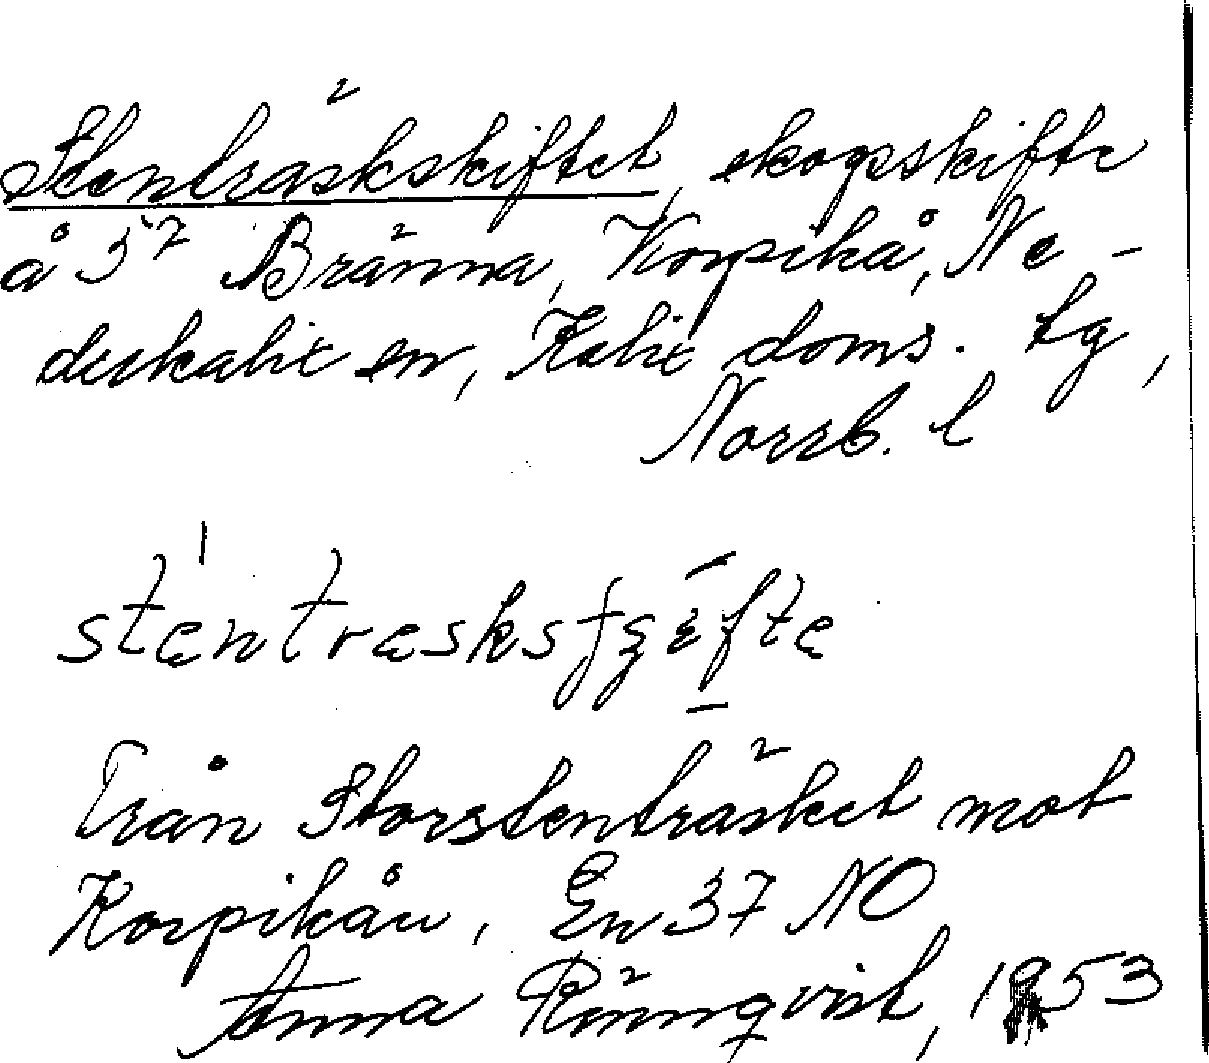 Stenträskskiftet, skogsskifte
å 3⁷ Bränna, Korpikå, Ne-
derkalix sn, Kalix doms. tg,
Norrb. l
sténtræsksʃɟɛ́fte
Från Storstenträsket mot
Korpikån, En 37 NO
Anna Rönnqvist, 1953